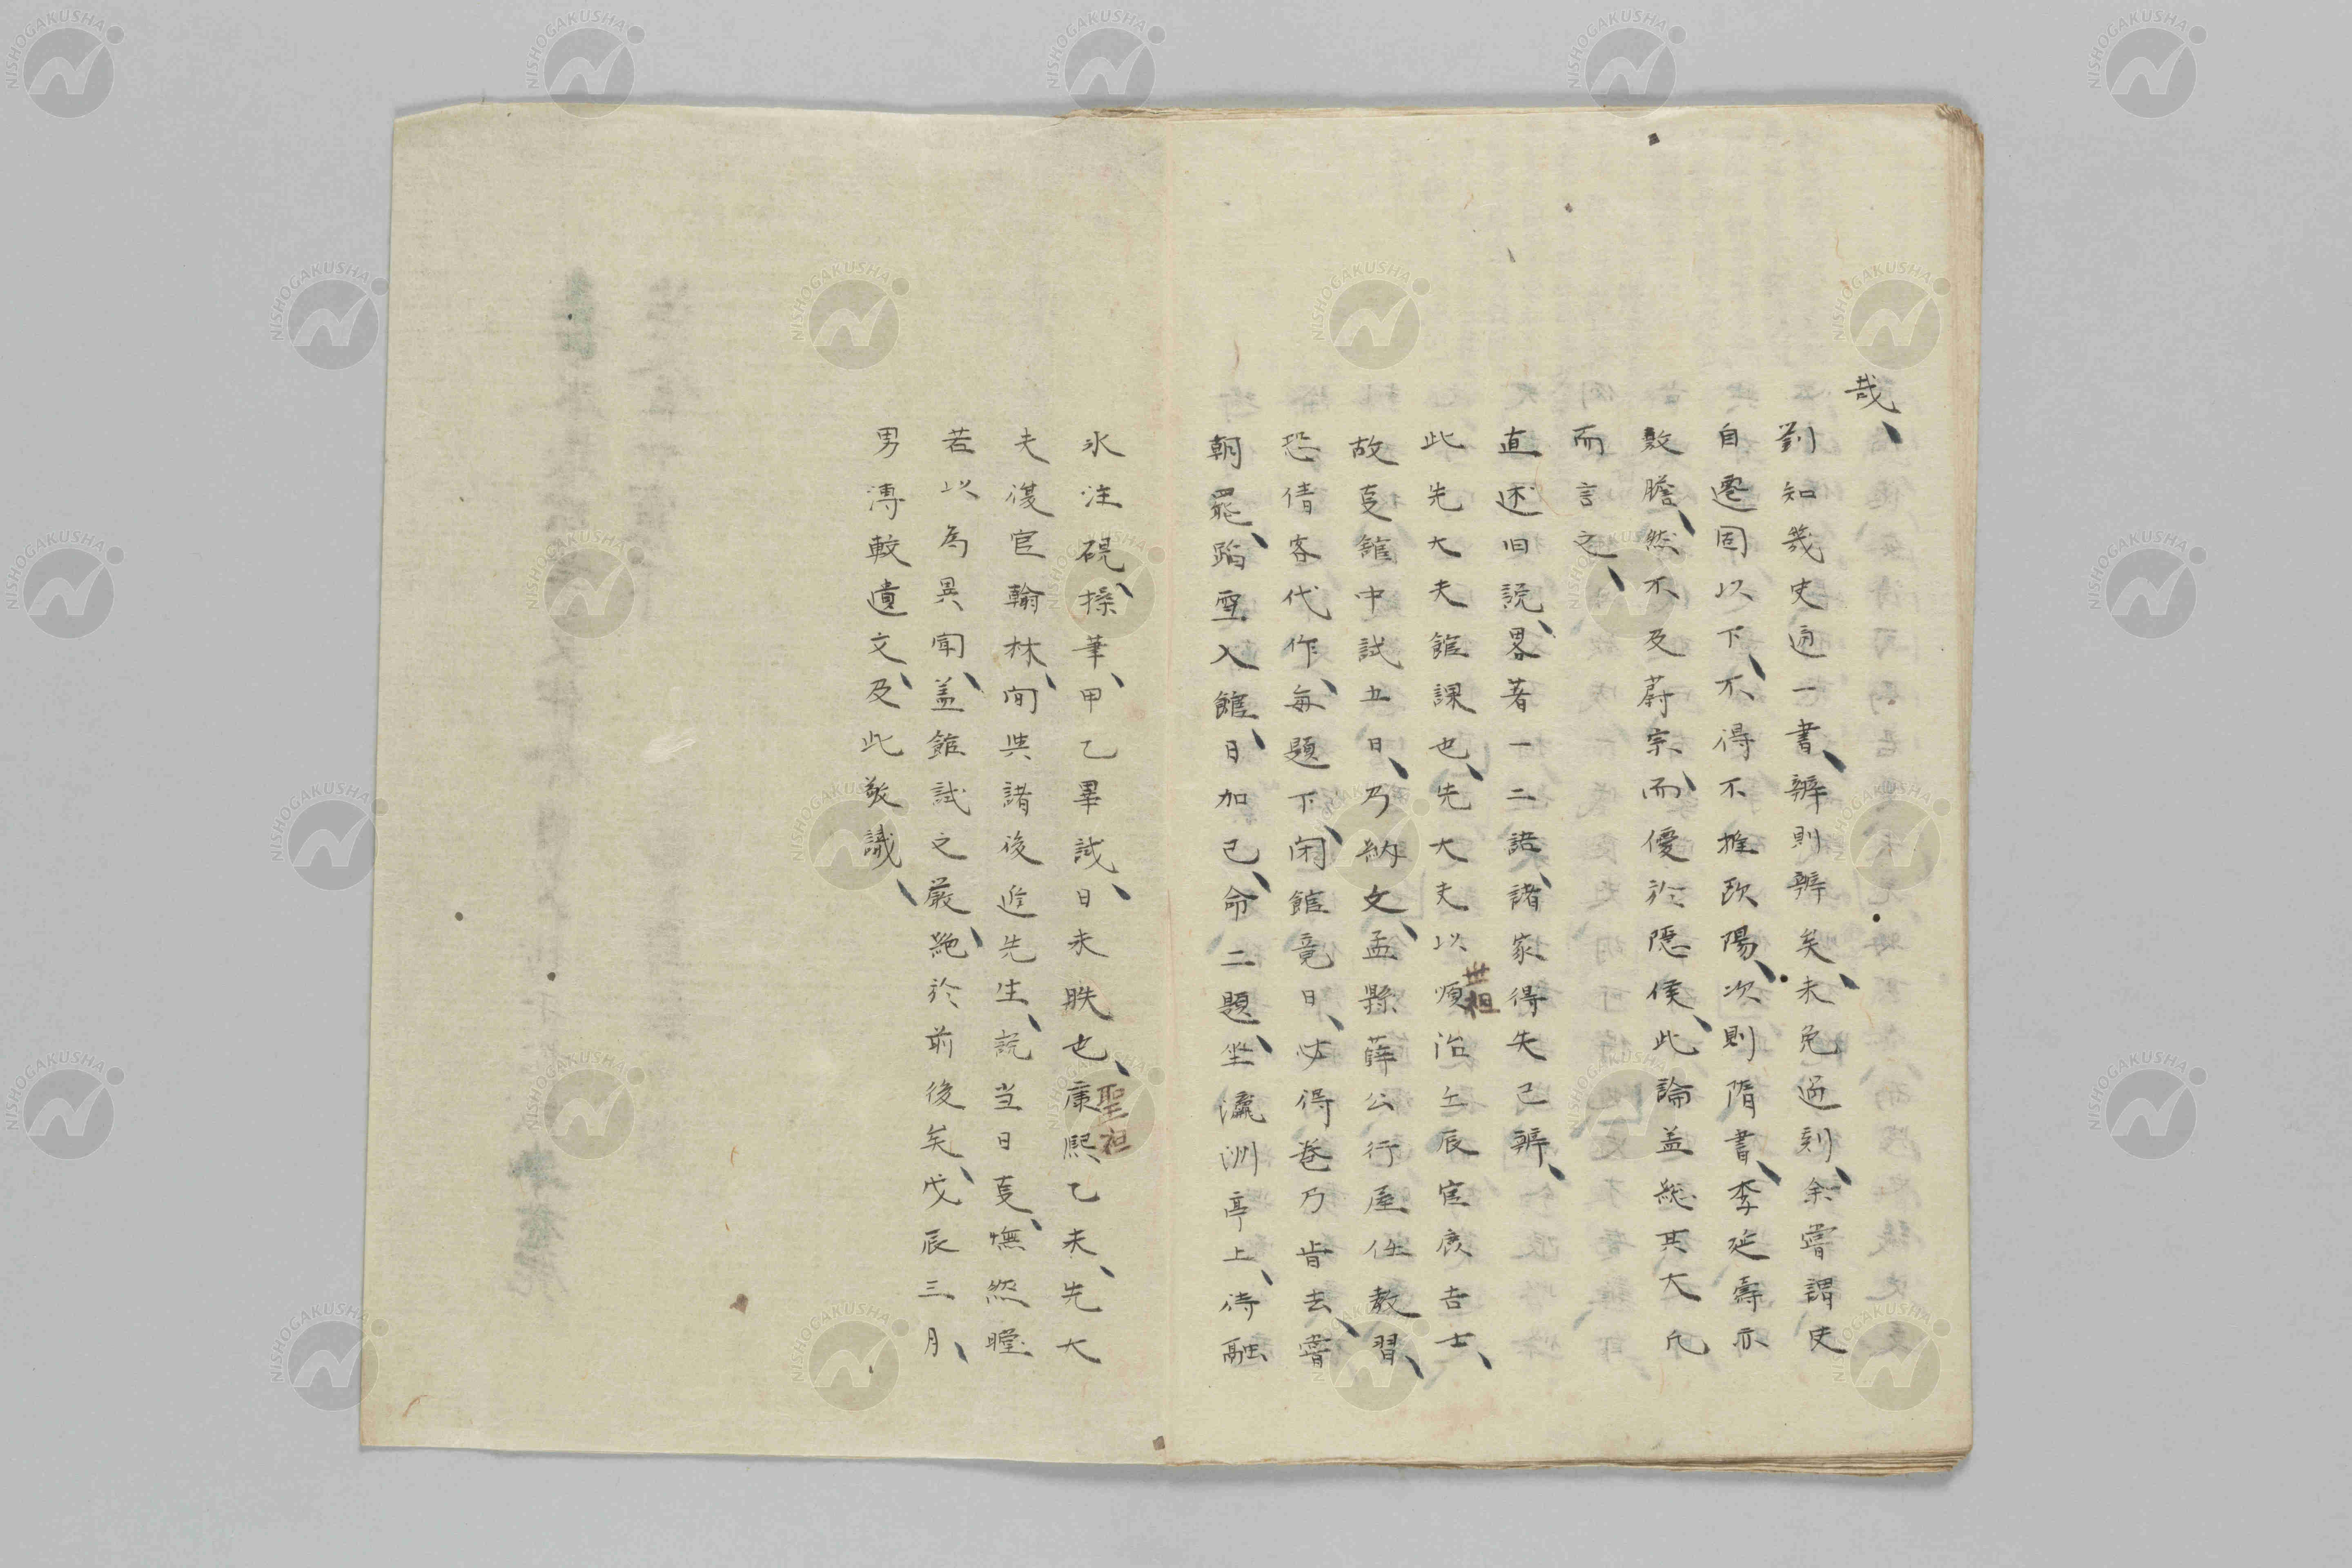 哉、
劉知幾史通一書、辨則辨矣、未免過刻、余嘗謂史
自遷固以下、不得不推欧陽、次則隋書、李延壽亦
敷贍、然不及蔚宗、而優於隠侯、此論盖総其大凡
而言之、
直述旧説、畧著一二語、諸家得失已辨、
此先大夫館課也、先大夫以順治壬辰官庶吉士、
世祖
故事館中試五日、乃納文、孟縣薛公行屋任教習、
恐倩客代作、毎題下、閉館竟日、必得巻乃肯去、嘗
朝罷、蹈雪入館、日加已、命二題、坐瀛洲亭上、待融
氷注硯、操筆、甲乙畢試、日未昳也、康熙乙未、先大
聖祖
夫復官翰林、间與諸後進先生、説当日事、憮然瞠
若以為異聞、盖館試之嚴、絶於前後矣、戊辰三月、
男溥較遺文、及此敬識、
NISHOGAKUSHA